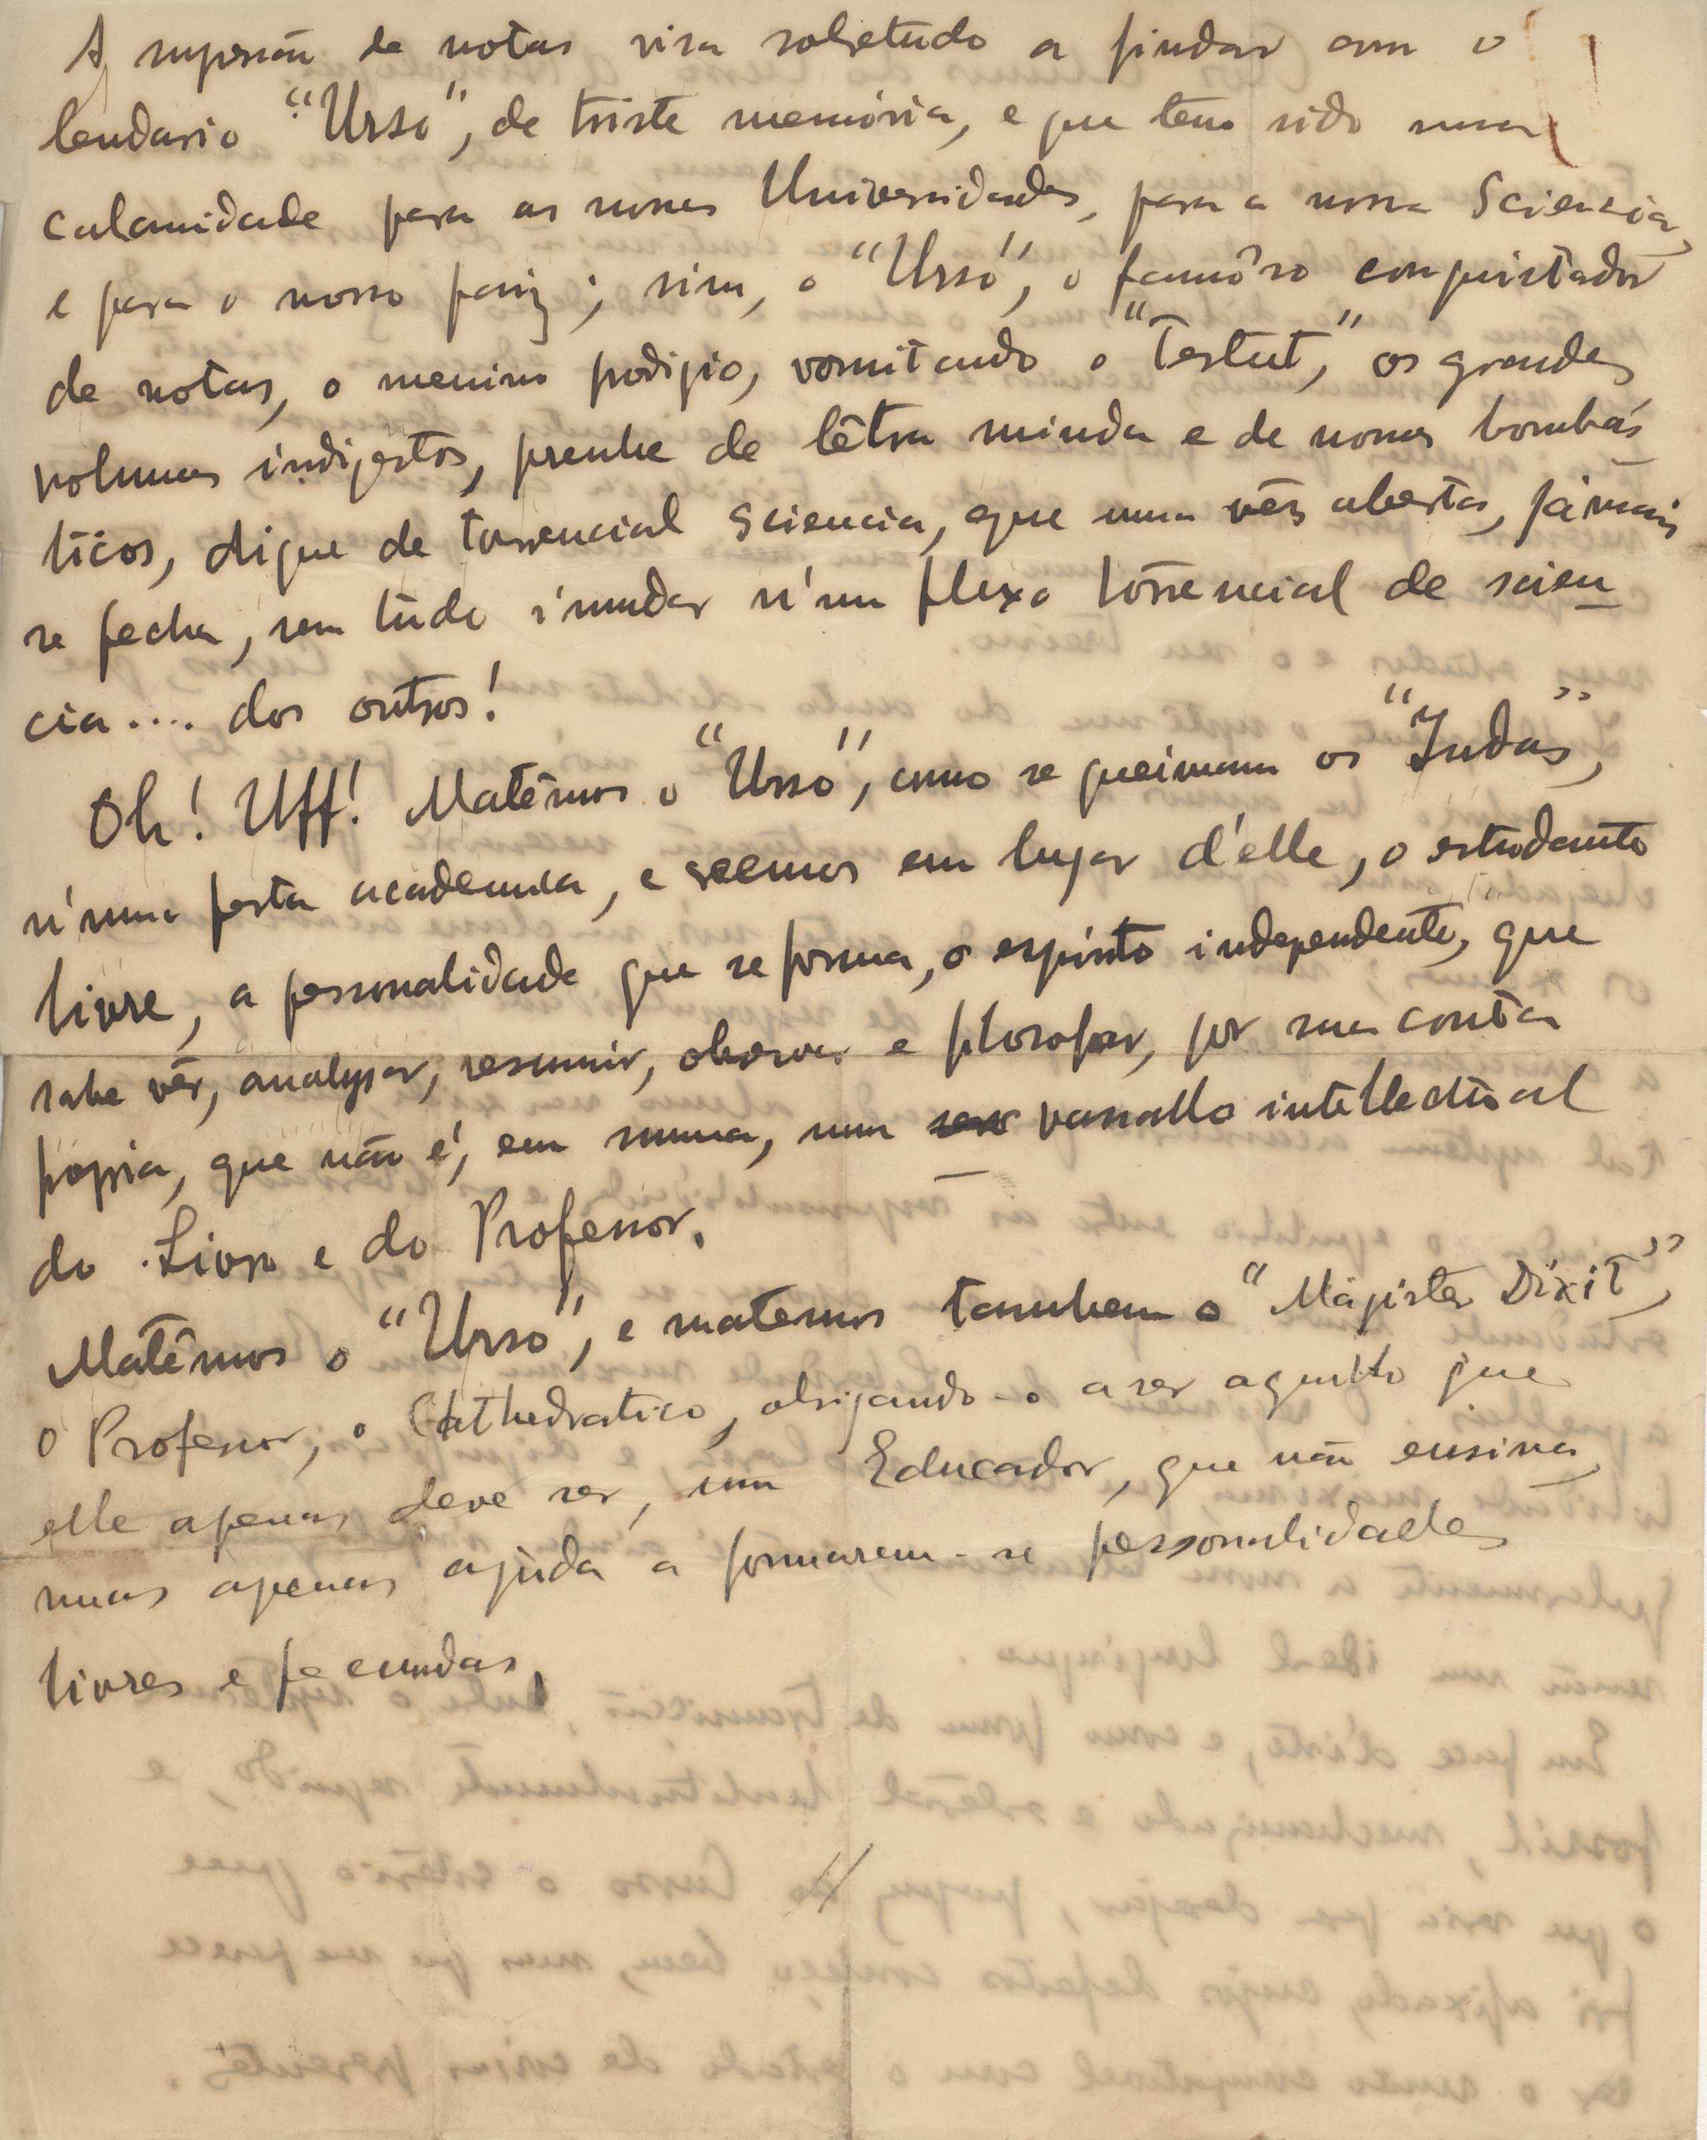 A supressão de notas visa sobretudo a findar com o
lendario "Urso", de triste memória, e que tem sido uma
calamidade para as nossas Universidades, para a nossa Sciencia,
e para o nosso paiz; sim, o "Urso", o famôso conquistador
de notas, o menino prodigio, vomitando o "Testut", os grandes
volumes indigestos, prenhe de lêtra miuda e de nomes bombás
ticos, dique de torrencial Sciencia, que uma vês aberta, jámais
se fecha, sem tudo inundar n'um fluxo torrencial de scien
cia.... dos outros!
Oh! Uff! Matêmos o "Urso", como se queimam os "Judas",
n'uma festa academica, e creemos em lugar d'elle, o estudante
livre, a personalidade que se forma, o espirito independente, que
sabe vêr, analysar, resumir, observar e filosofar, por sua conta
propria, que não é, em summa, um vassallo intellectual
do Livro e do Professor.
Matêmos o "Urso", e matemos tambem o "Magister Dixit",
o Professor, o Cathedratico, obrigando-o a ser aquillo que
elle apenas deve ser, um Educador, que não ensina,
mas apenas ajuda a formarem-se personalidades
livres e fecundas.